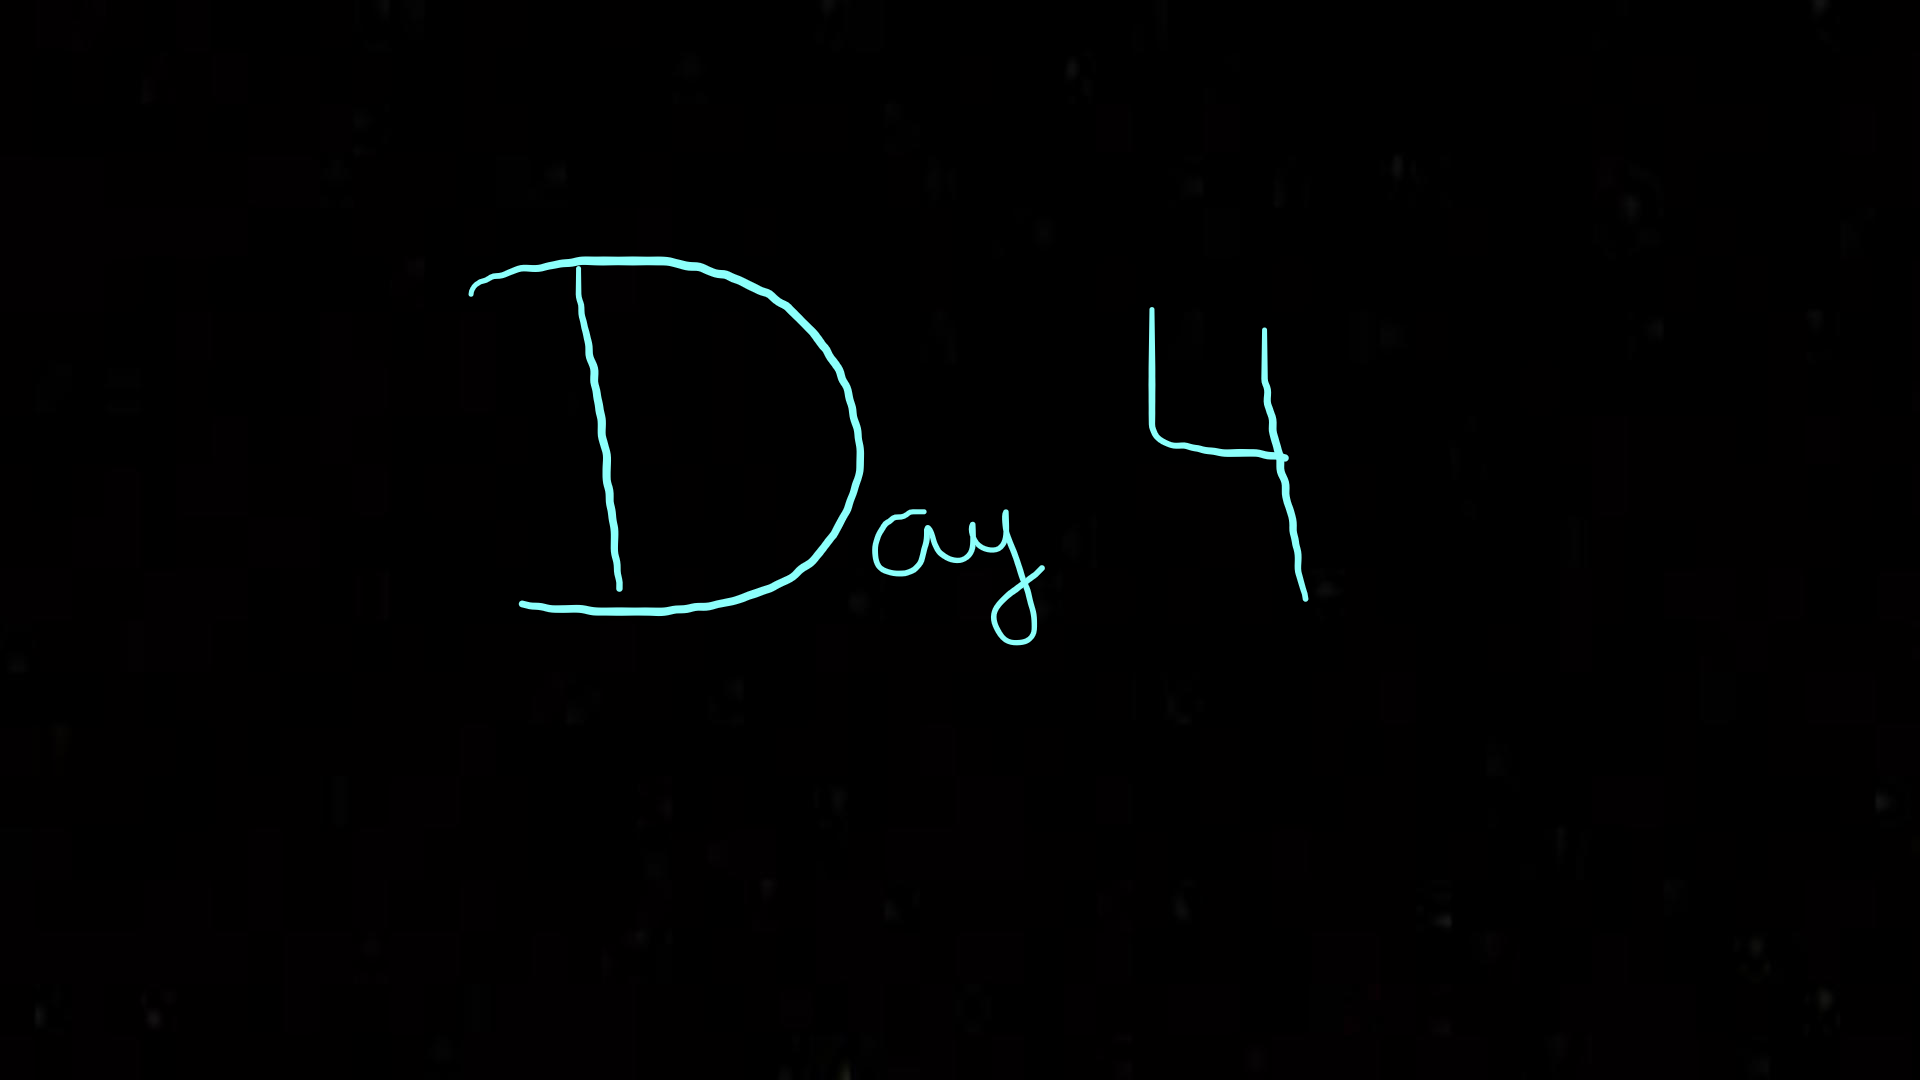 Day 4